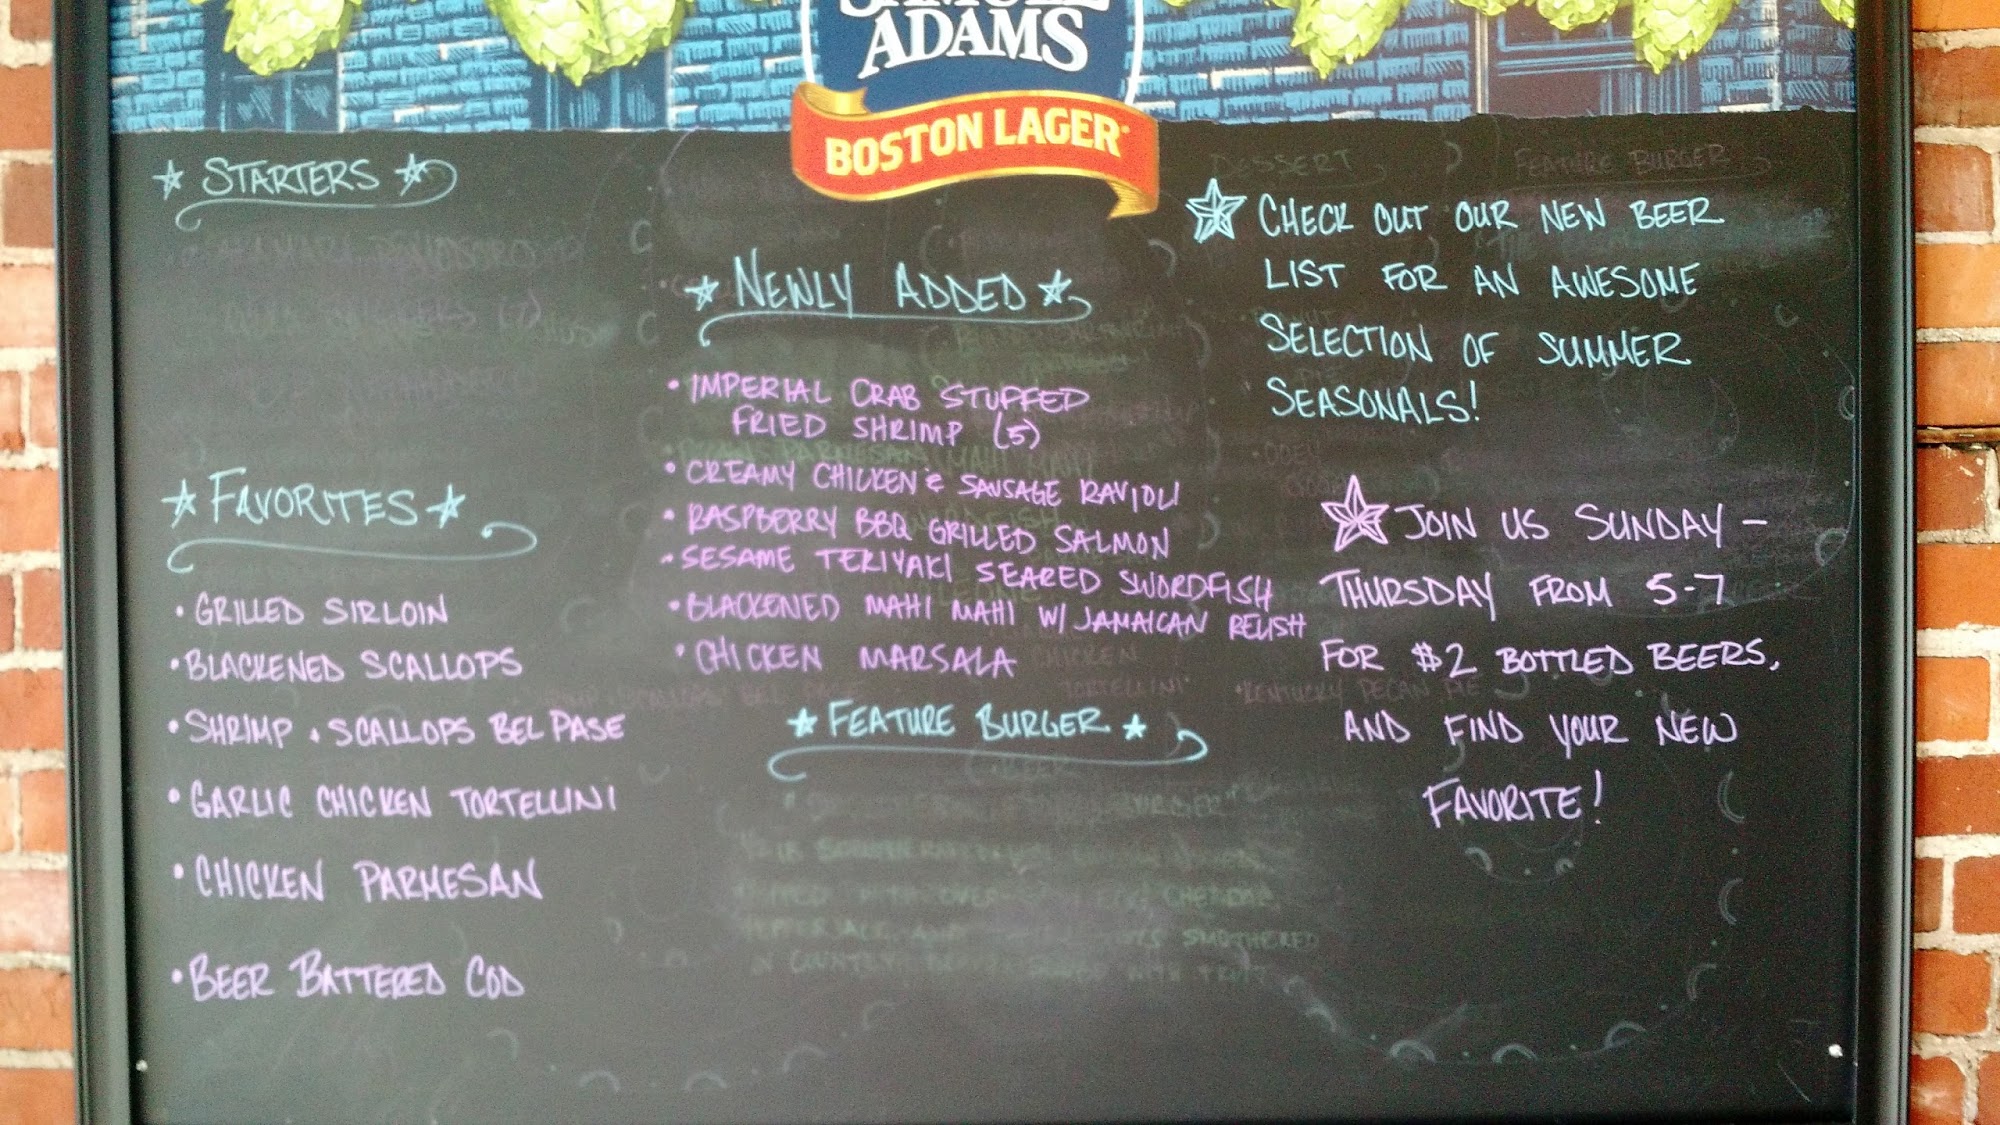 ADAMS
BOSTON LAGER
★ STARTERS ★
★ FAVORITES ★
• GRILLED SIRLOIN
• BLACKENED SCALLOPS
• SHRIMP & SCALLOPS BEL PASE
• GARLIC CHICKEN TORTELLINI
• CHICKEN PARMESAN
• BEER BATTERED COD
★ NEWLY ADDED ★
• IMPERIAL CRAB STUFFED
FRIED SHRIMP (5)
• CREAMY CHICKEN & SAUSAGE RAVIOLI
• RASPBERRY BBQ GRILLED SALMON
• SESAME TERIYAKI SEARED SWORDFISH
• BLACKENED MAHI MAHI W/ JAMAICAN RELISH
• CHICKEN MARSALA
★ FEATURE BURGER ★
DESSERT
FEATURE BURGER
★ CHECK OUT OUR NEW BEER
LIST FOR AN AWESOME
SELECTION OF SUMMER
SEASONALS!
★ JOIN US SUNDAY -
THURSDAY FROM 5-7
FOR $2 BOTTLED BEERS,
AND FIND YOUR NEW
FAVORITE!
CHICKEN
TORTELLINI
KENTUCKY PECAN PIE
SMOTHERED